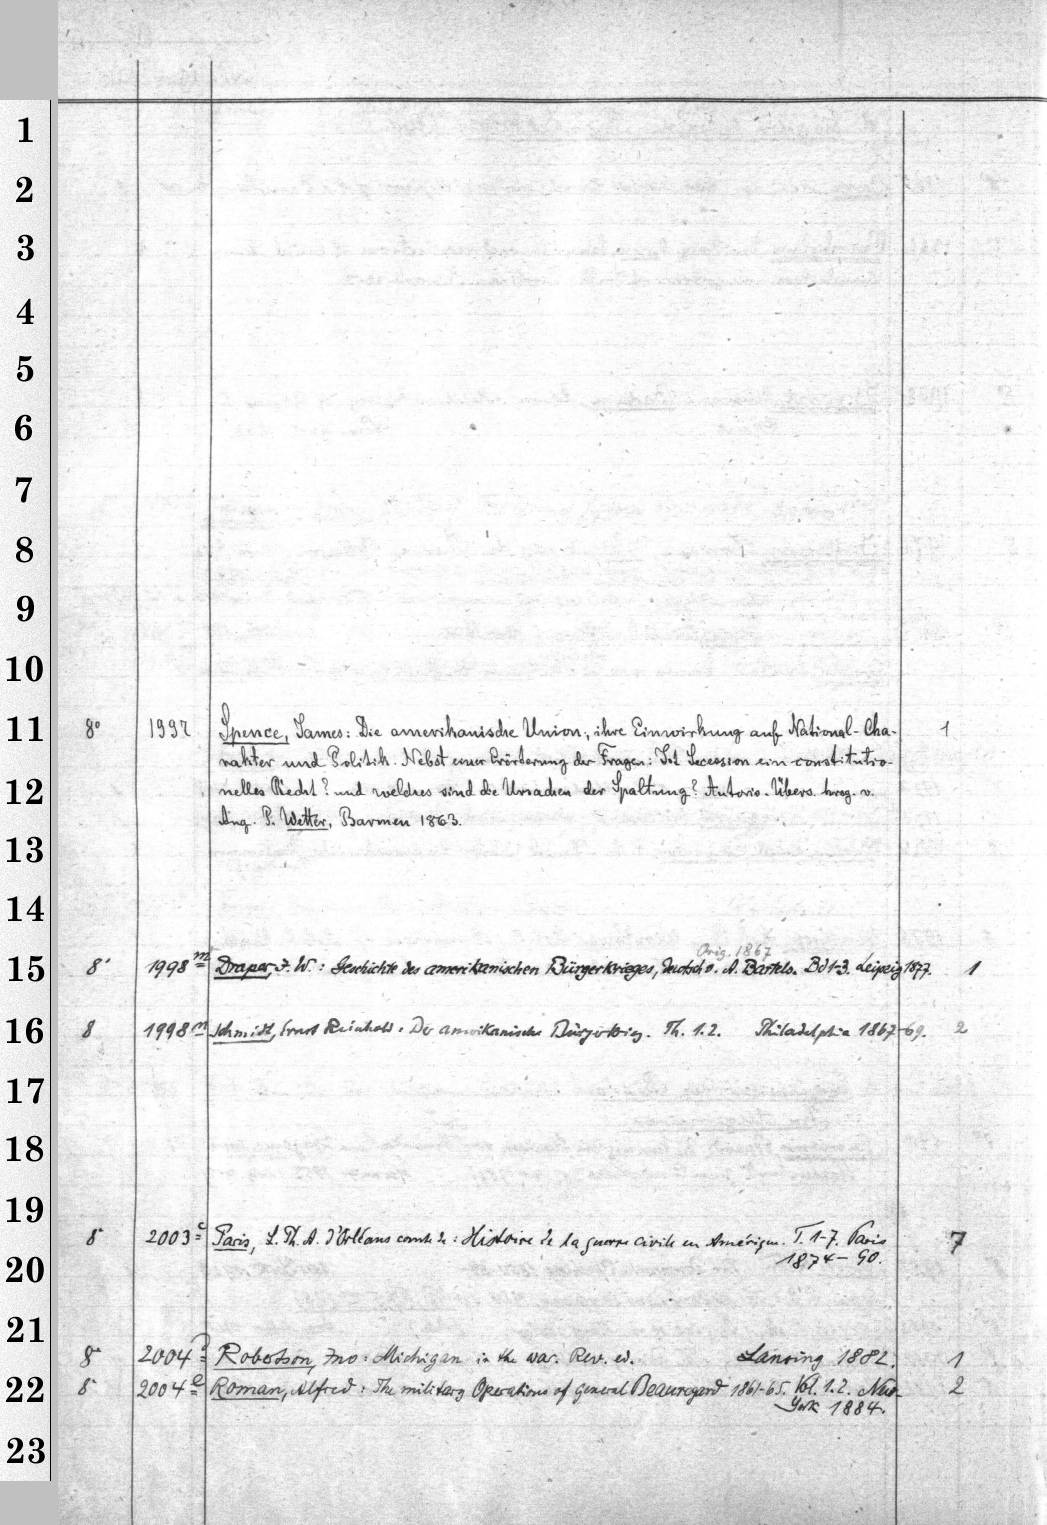 1
2
3
4
5
6
7
8
9
10
11
8° 1997 Spence, James: Die amerikanische Union, ihre Einwirkung auf National-Cha- 1
rakter und Politik. Nebst einer Erörterung der Fragen: Ist Secession ein constitutio-
12
nelles Recht? und welches sind die Ursachen der Spaltung? Autoris. Übers. hrsg. v.
Aug. P. Wetter, Barmen 1863.
13
14
Orig. 1867
15
8° 1998 m Draper, J. W.: Geschichte des amerikanischen Bürgerkrieges, deutsch v. A. Bartels. Bd 1-3. Leipzig 1877. 1
16
8 1998 m Schmidt, Ernst Reinhold: Der amerikanische Bürgerkrieg. Th. 1.2. Philadelphia 1867-69. 2
17
18
19
8° 2003 c Paris, L. Ph. A. d'Orléans comte de: Histoire de la guerre civile en Amérique. T. 1-7. Paris 7
1874-90.
20
21
8° 2004 Robertson, Jno: Michigan in the war. Rev. ed. Lansing 1882. 1
22
8° 2004 e Roman, Alfred: The military Operations of General Beauregard 1861-65. Vol. 1.2. New- 2
York 1884.
23